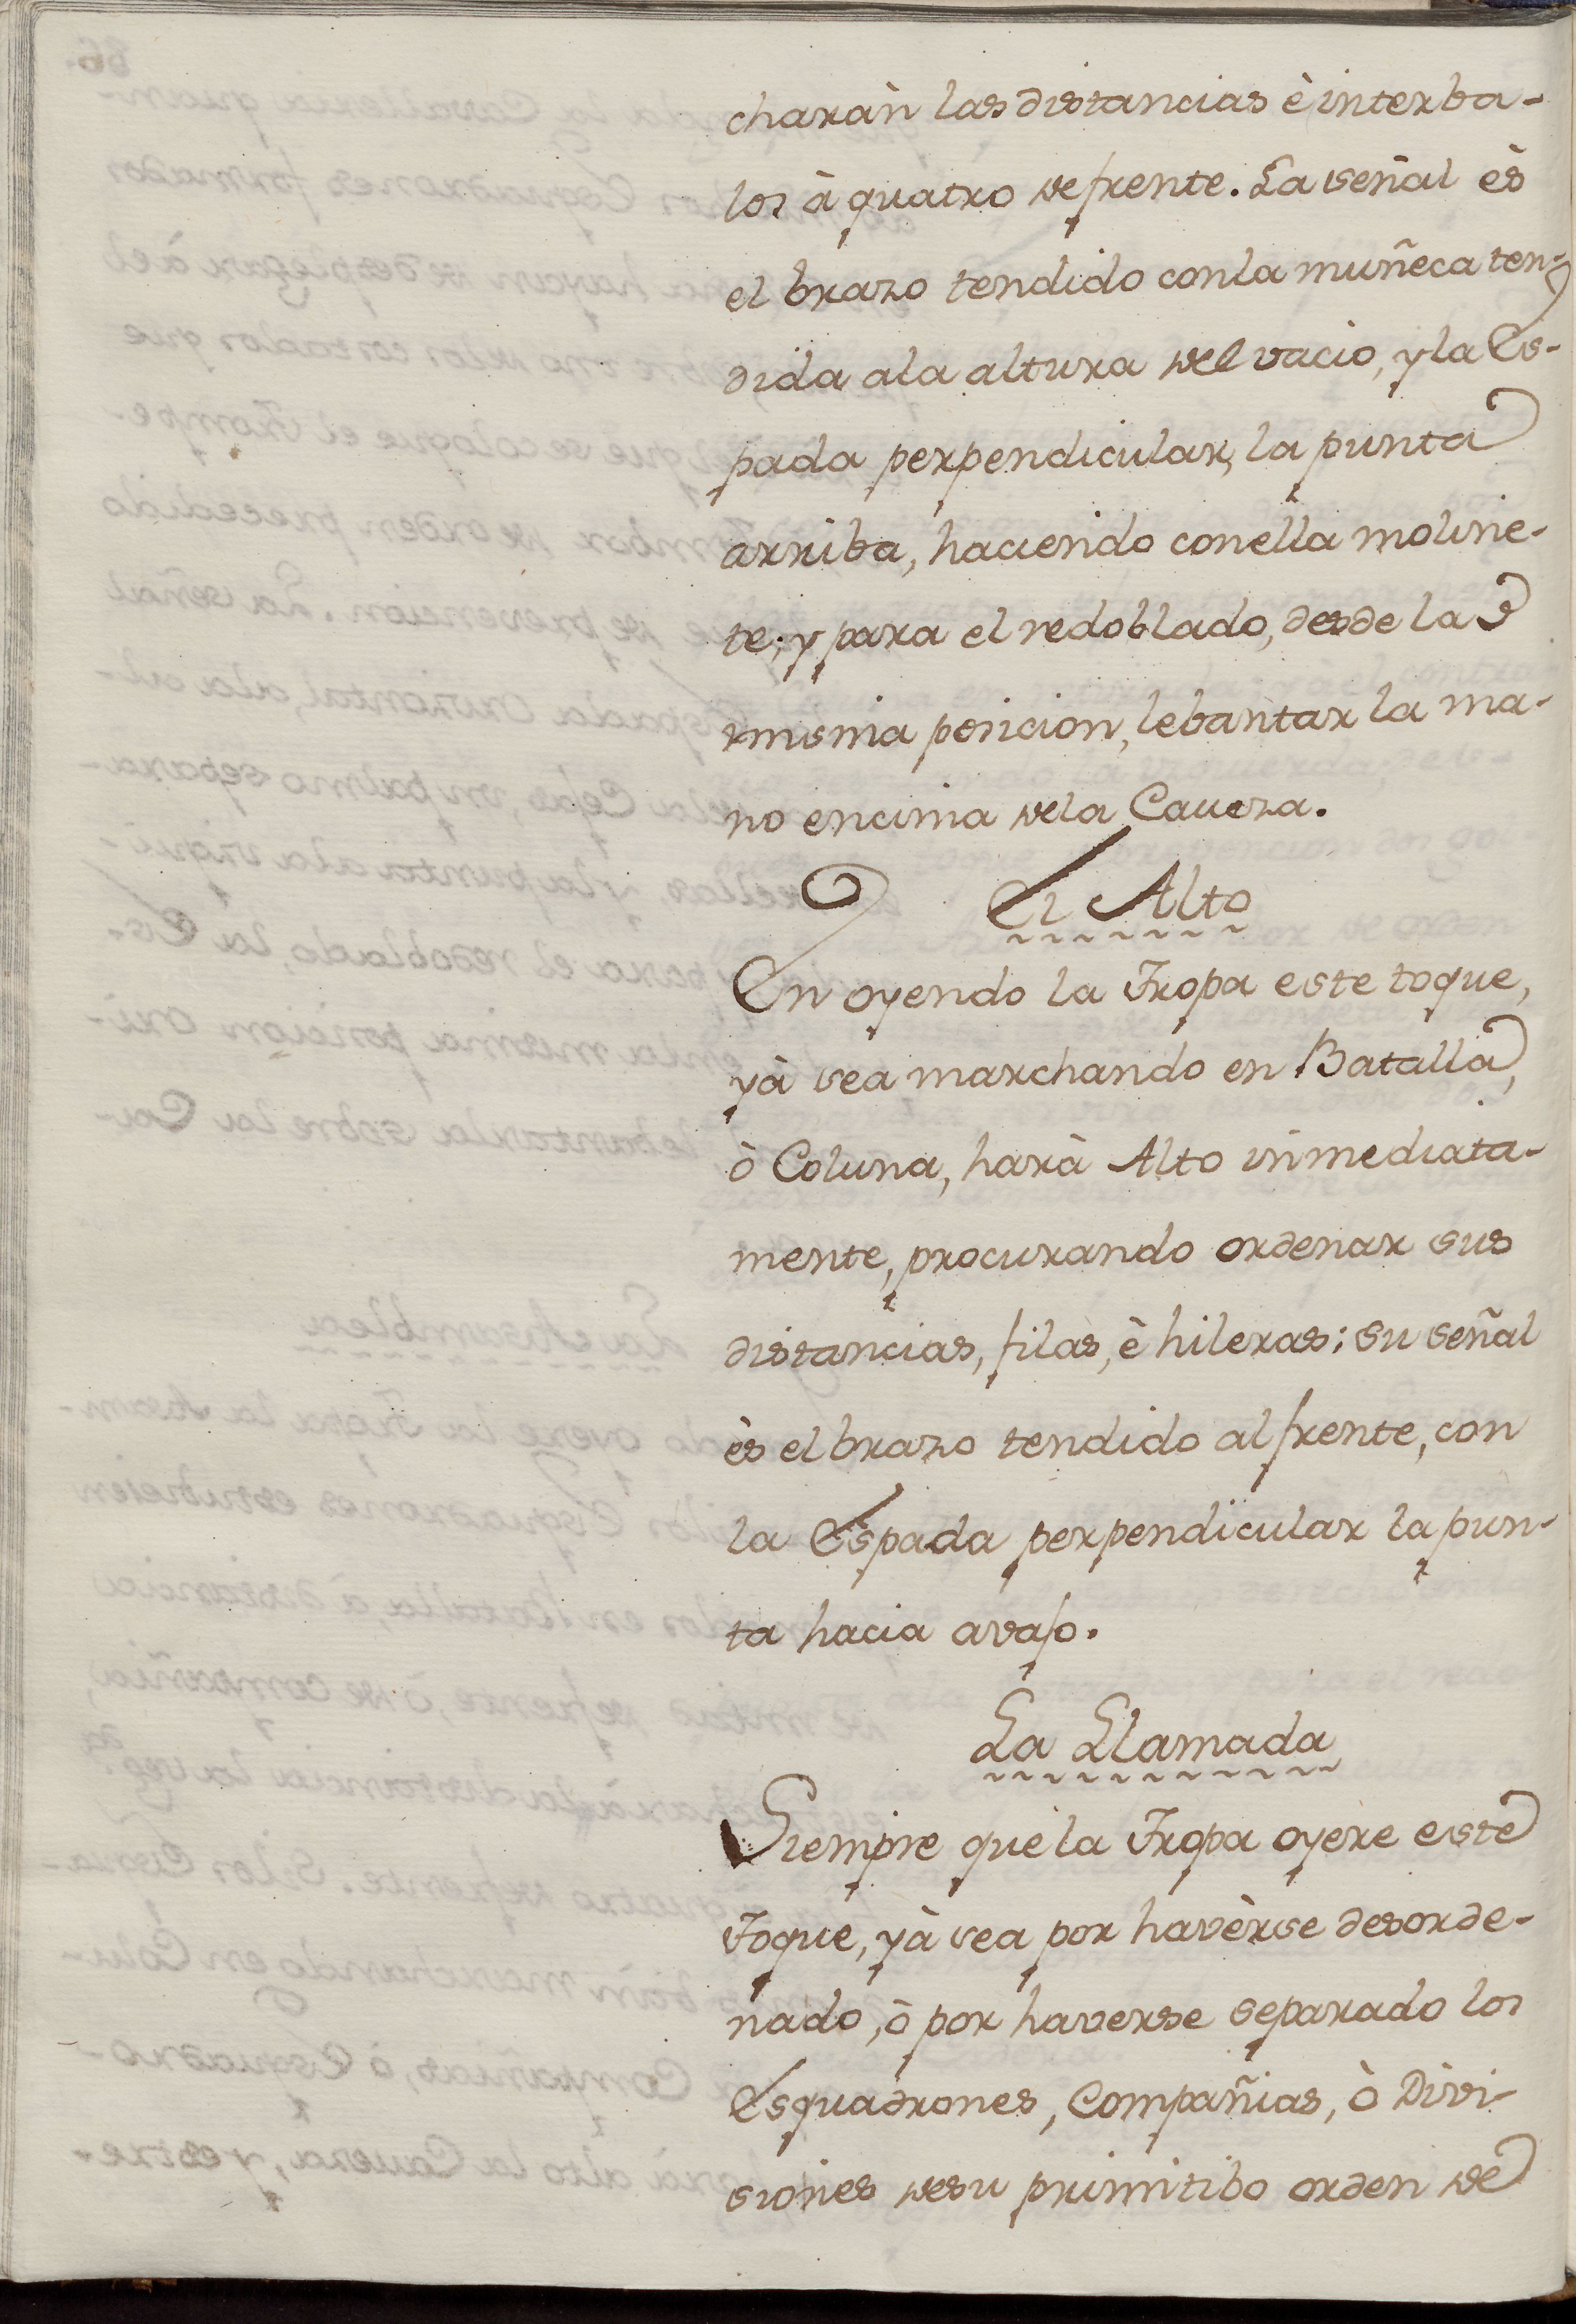 charàn las distancias è interba-
los à quatro de frente. La señal ès
el brazo tendido con la muñeca ten-
dida a la altura del vacio, y la Es-
pada perpendicular, la punta
arriba, haciendo con ella moline-
te; y para el redoblado, desde la
misma posicion, lebantar la ma-
no encima de la Caueza.
El Alto
En oyendo la Tropa este toque,
yà sea marchando en Batalla,
ò Coluna, harà Alto inmediata-
mente, procurando ordenar sus
distancias, filas, è hileras; su señal
ès el brazo tendido al frente, con
la Espada perpendicular la pun-
ta hacia avajo.
La Llamada
Siempre que la Tropa oyere este
Toque, yà sea por havèrse desorde-
nado, ò por haverse separado los
Esquadrones, Compañias, ò Divi-
siones de su primitibo orden de